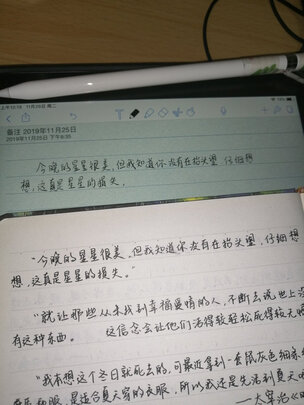 上午10:19 11月26日 周二
备注 2019年11月25日
2019年11月25日 下午8:35
今晚的星星很美,但我知道你没有在抬头望 仔细想
想,这真是星星的损失。
“今晚的星星很美,但我知道你没有在抬头望,仔细想
想,这真是星星的损失。”
“就让那些从未找到幸福爱情的人,不断去说世上没
有这种东西。 这信念会让他们活得较轻松死得较无
“我本想这个冬日就死去的,可最近拿到一套鼠灰色细条
是适合夏天穿的衣服,所以我还是先活到夏天吧
——太宰治